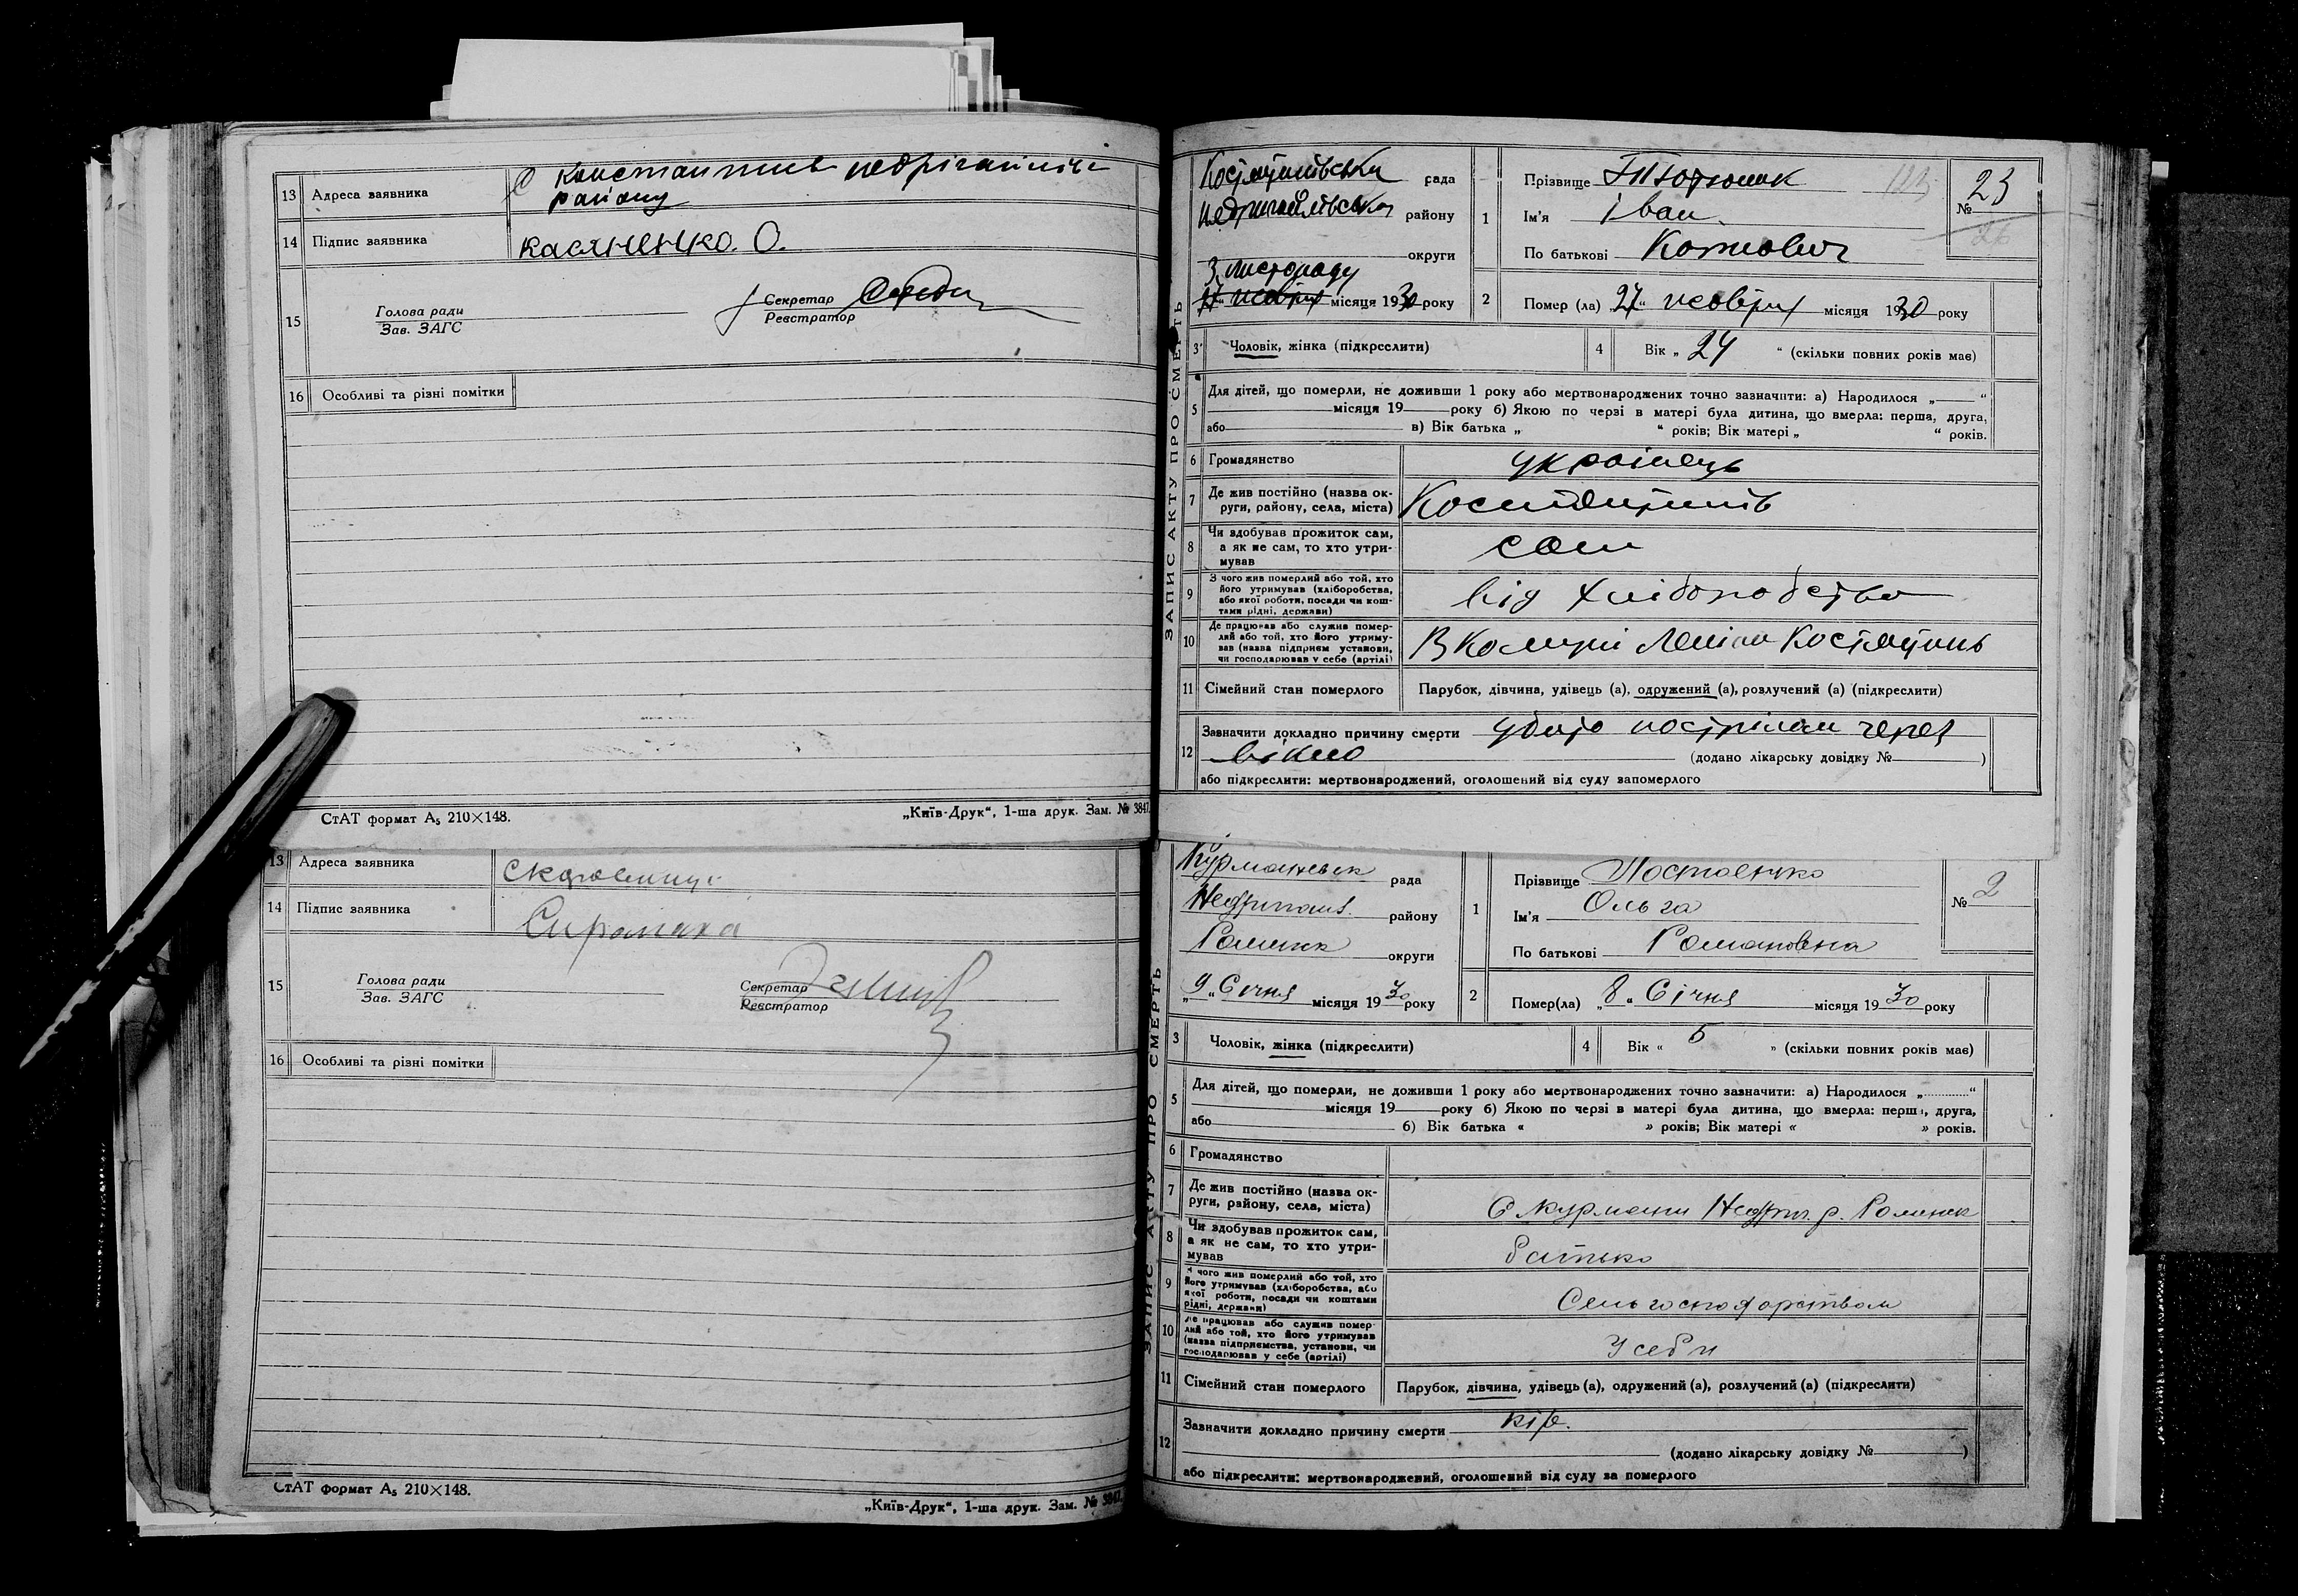 13 Адреса заявника
району
14 Підпис заявника Касяненко. О.
15 Голова ради
Зав. ЗАГС
Секретар
Реєстратор
16 Особливі та різні помітки
СтАТ формат А₅ 210×148. „Київ-Друк“, 1-ша друк. Зам. № 3847.
13 Адреса заявника
14 Підпис заявника
15 Голова ради
Зав. ЗАГС
Секретар
Реєстратор
16 Особливі та різні помітки
СтАТ формат А₅ 210×148.
„Київ-Друк“, 1-ша друк. Зам. № 3847.
ЗАПИС АКТУ ПРО СМЕРТЬ
рада
району
округи
3. листопаду
місяця 1930 року
1 Прізвище
Ім'я Іван
По батькові
№ 23
2 Помер (ла) „27“ жовтня місяця 1930 року
3 Чоловік, жінка (підкреслити)
4 Вік „ 24 “ (скільки повних років має)
5 Для дітей, що померли, не доживши 1 року або мертвонароджених точно зазначити: а) Народилося „ “
місяця 19 року б) Якою по черзі в матері була дитина, що вмерла: перша, друга,
або в) Вік батька „ “ років; Вік матері „ “ років.
6 Громадянство українець
7 Де жив постійно (назва ок-
руги, району, села, міста)
8 Чи здобував прожиток сам,
а як не сам, то хто утри-
мував
сам
9 З чого жив померлий або той, хто
його утримував (хліборобства,
або якої роботи, посади чи кош-
тами рідні, держави)
від хліборобства
10 Де працював або служив помер-
лий або той, хто його утриму-
вав (назва підприєм установи,
чи господарював у себе (артілі)
11 Сімейний стан померлого Парубок, дівчина, удівець (а), одружений (а), розлучений (а) (підкреслити)
12 Зазначити докладно причину смерти убито пострілом через
вікно (додано лікарську довідку № )
або підкреслити: мертвонароджений, оголошений від суду запомерлого
ЗАПИС АКТУ ПРО СМЕРТЬ
рада
району
округи
„9“ Січня місяця 1930 року
1 Прізвище
Ім'я Ольга
По батькові Романовна
№ 2
2 Помер(ла) „8“ Січня місяця 1930 року
3 Чоловік, жінка (підкреслити)
4 Вік « 5 » (скільки повних років має)
5 Для дітей, що померли, не доживши 1 року або мертвонароджених точно зазначити: а) Народилося „ “
місяця 19 року б) Якою по черзі в матері була дитина, що вмерла: перша, друга,
або б) Вік батька « » років; Вік матері « » років.
6 Громадянство
7 Де жив постійно (назва ок-
руги, району, села, міста)
8 Чи здобував прожиток сам,
а як не сам, то хто утри-
мував
батько
9 З чого жив померлий або той, хто
його утримував (хліборобства, або
якої роботи, посади чи коштами
рідні, держави)
Сельгосподарством
10 Де працював або служив помер-
лий або той, хто його утримував
(назва підприємства, установи, чи
господарював у себе (артілі)
У себи
11 Сімейний стан померлого Парубок, дівчина, удівець (а), одружений (а), розлучений (а) (підкреслити)
12 Зазначити докладно причину смерти кір.
(додано лікарську довідку № )
або підкреслити: мертвонароджений, оголошений від суду за померлого